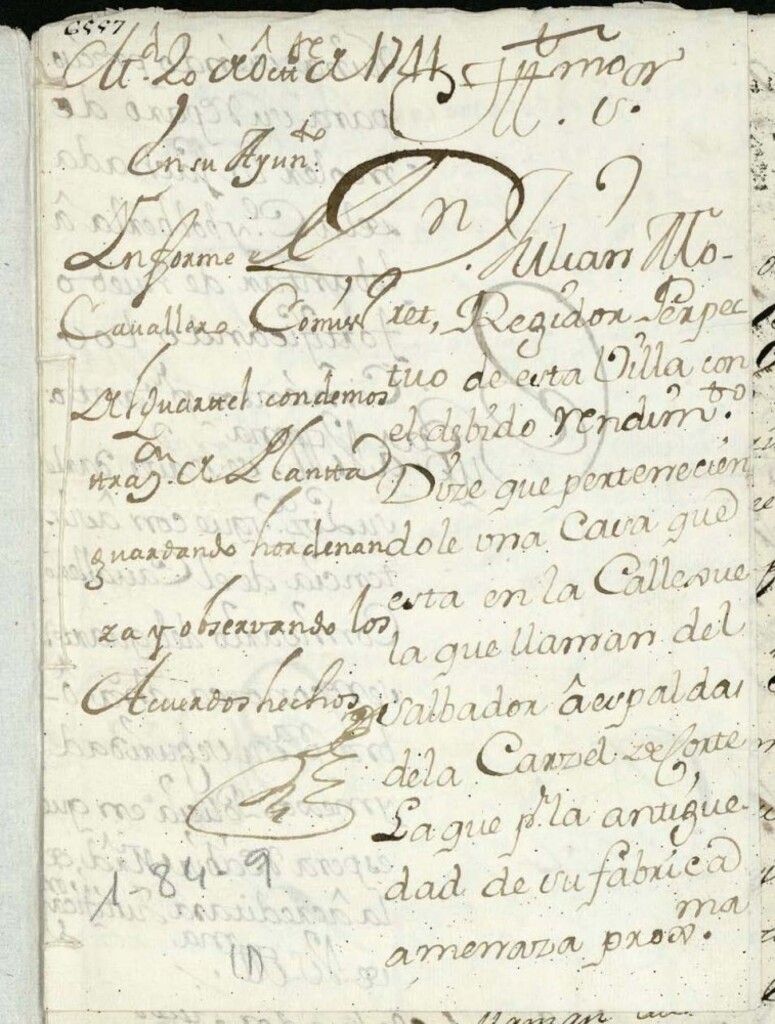 M.d 20 de Oct.re de 1741
En su Ayun.to
Informe el
Cavallero Comis.o
del Quartel con demos
traz.on de Plantta
guardando hordenan
za y observando los
Acuerdos hechos
1-84-9
Ill.mo S.r
D.n Julian Mo-
ret, Regidor Perpec
tuo de esta Villa con
el debido rendim.to
Dize que pertenecien
dole una Casa que
esta en la Calle
la que llaman del
Salbador â espaldas
de la Carzel de Corte
La que p.r la antigue-
dad de su fabrica
amenaza prox.ma